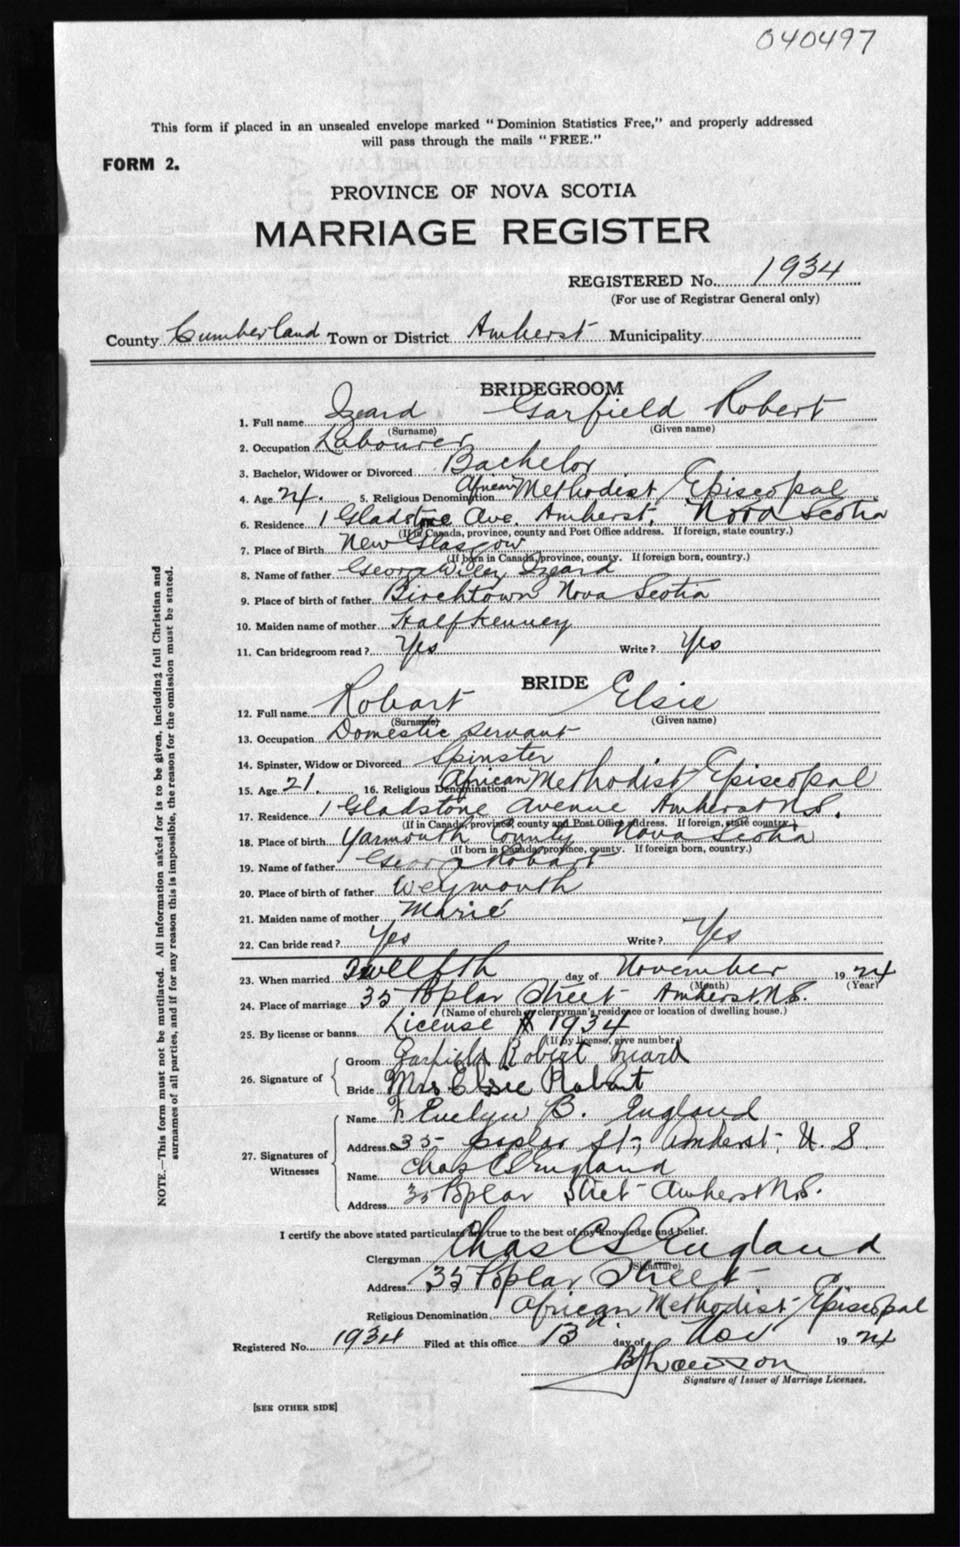 040497
This form if placed in an unsealed envelope marked "Dominion Statistics Free," and properly addressed
will pass through the mails "FREE."
FORM 2.
PROVINCE OF NOVA SCOTIA
MARRIAGE REGISTER
REGISTERED No. 1934
(For use of Registrar General only)
County Cumberland Town or District Amherst Municipality
BRIDEGROOM
1. Full name Izeard Garfield Robert
(Surname) (Given name)
2. Occupation Labourer
3. Bachelor, Widower or Divorced Bachelor
4. Age 24. 5. Religious Denomination African Methodist Episcopal
6. Residence 1 Gladstone Ave. Amherst, Nova Scotia
(If in Canada, province, county and Post Office address. If foreign, state country.)
7. Place of Birth New Glasgow
(If born in Canada, province, county. If foreign born, country.)
8. Name of father George Wiley Izeard
9. Place of birth of father Birchtown Nova Scotia
10. Maiden name of mother Halfkenney
11. Can bridegroom read? Yes Write? Yes
BRIDE
12. Full name Robart Elsie
(Surname) (Given name)
13. Occupation Domestic Servant
14. Spinster, Widow or Divorced Spinster
15. Age 21. 16. Religious Denomination African Methodist Episcopal
17. Residence 1 Gladstone Avenue Amherst N.S.
(If in Canada, province, county and Post Office address. If foreign, state country.)
18. Place of birth Yarmouth County Nova Scotia
(If born in Canada, province, county. If foreign born, country.)
19. Name of father George Robart
20. Place of birth of father Weymouth
21. Maiden name of mother Marie
22. Can bride read? Yes Write? Yes
23. When married Twelfth day of November 1924
(Month) (Year)
24. Place of marriage 35 Poplar Street Amherst N.S.
(Name of church or clergyman's residence or location of dwelling house.)
25. By license or banns License # 1934
(If by license, give number)
26. Signature of
Groom Garfield Robert Izeard
Bride Mrs Elsie Robart
27. Signatures of Witnesses
Name F. Evelyn B. England
Address 35 poplar St, Amherst, N.S.
Name Chas C S England
Address 35 Poplar Street Amherst N.S.
I certify the above stated particulars are true to the best of my knowledge and belief.
Clergyman Chas C S England
(Signature)
Address 35 Poplar Street
Religious Denomination African Methodist Episcopal
Registered No. 1934 Filed at this office 13 day of Nov 1924
Signature of Issuer of Marriage Licenses.
[SEE OTHER SIDE]
NOTE.—This form must not be mutilated. All information asked for is to be given, including full Christian and
surnames of all parties, and if for any reason this is impossible, the reason for the omission must be stated.